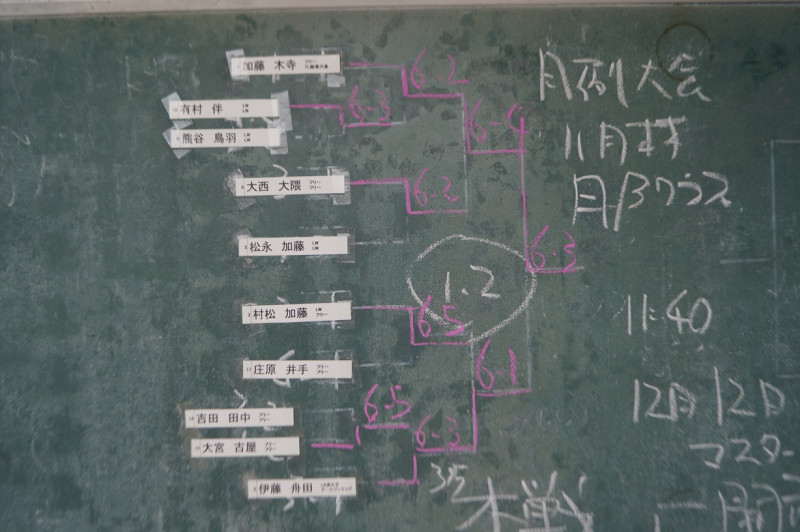 加藤 木寺
有村 伴
熊谷 鳥羽
大西 大隈
松永 加藤
村松 加藤
庄原 井手
吉田 田中
大宮 古屋
伊藤 舟田
6-2
6-3
6-4
6-2
6-3
1.2
6-5
6-1
6-5
6-3
月例大会
11月
男Bクラス
11:40
12月12日
マスター
本戦